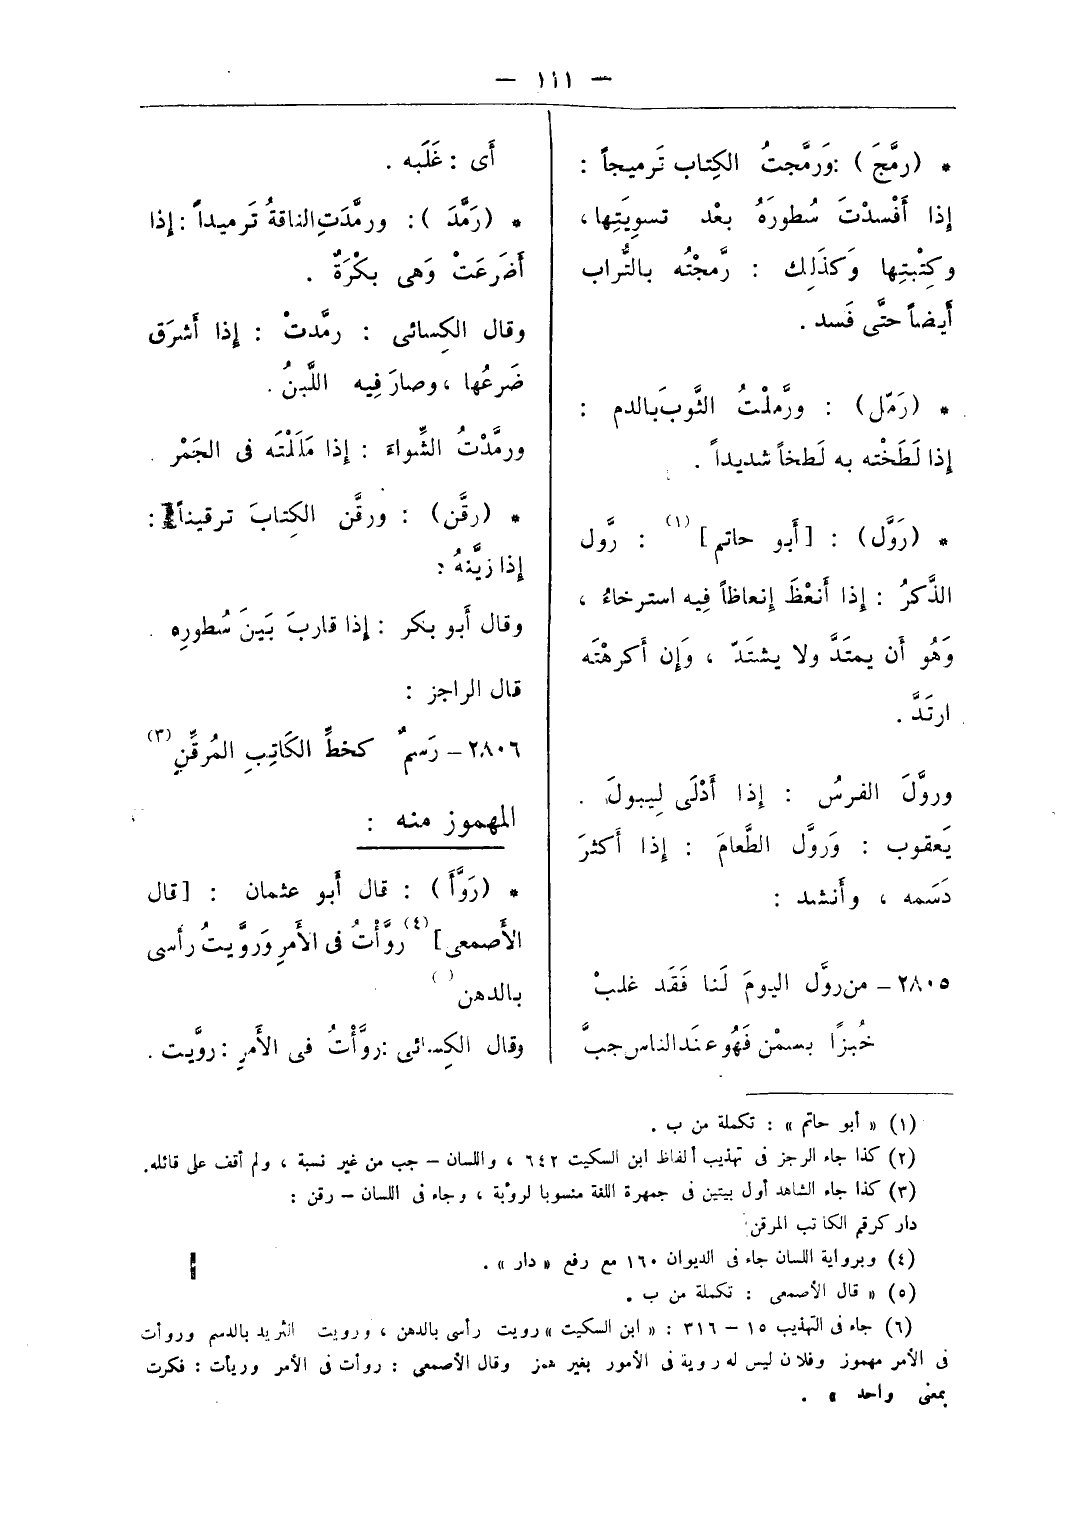 — ١١١ —
* (رمَّجَ) : وَرمَّجتُ الكِتاب تَرميجاً :
إذا أَفْسدْتَ سُطورَهُ بعْد تسويَتِها،
وكِتْبتِها وَكذَلِك : رمَّجْتُه بالتُّراب
أَيضاً حتَّى فَسد .
* (رَمّل) : ورمَّلْتُ الثَّوبَ بالدم :
إذا لَطَخْته به لَطخاً شديداً .
* (رَوَّل) : [أَبو حاتم] (١) : روَّل
الذَّكرُ : إذا أَنعْظَ إنعاظاً فِيه استرخاءُ ،
وَهُو أَن يمتَدَّ ولا يشتَدّ ، وَإن أَكرهْتَه
ارتَدَّ .
وروَّلَ الفرسُ : إذا أَدْلَى لِيبولَ .
يَعقوب : وَروَّل الطَّعامَ : إذا أَكثرَ
دَسَمه ، وأَنشد :
٢٨٠٥ – من روَّل اليومَ لَنا فَقَد غلبْ
خُبزًا بسمْن فَهُو عنَد الناس جبّ
أَى : غَلَبه .
* (رَمَّدَ) : ورمَّدَتِ الناقةُ تَرميداً : إذا
أَضَرعَتْ وَهى بكْرَةٌ .
وقال الكِسائى : رمَّدتْ : إذا أَشرَق
ضَرعُها ، وصارَ فِيه اللَّبنُ .
ورمَّدْتُ الشِّواءَ : إذا مَلَلْتَه فى الجَمْر .
* (رقَّن) : ورقَّن الكِتابَ ترقيناً :
إذا زيَّنهُ :
وقال أَبو بكر : إذا قاربَ بَينَ سُطورِه .
قال الراجز :
٢٨٠٦ – رَسمٌ كخطِّ الكَاتِبِ المُرقِّنِ (٣)
المهموز منه :
* (رَوَّأَ) : قال أَبو عثمان : [قال
الأَصمعى] (٤) روَّأْتُ فى الأَمرِ وَروَّيتُ رأسى
بالدهن ( )
وقال الكِسائى : روَّأْتُ فى الأَمرِ : روَّيت .
(١) « أبو حاتم » : تكملة من ب .
(٢) كذا جاء الرجز فى تهذيب ألفاظ ابن السكيت ٦٤٢ ، واللسان – جب من غير نسبة ، ولم أقف على قائله.
(٣) كذا جاء الشاهد أول بيتين فى جمهرة اللغة منسوبا لرؤبة ، وجاء فى اللسان – رقن :
دار كرقم الكاتب المرقن
(٤) وبرواية اللسان جاء فى الديوان ١٦٠ مع رفع « دار » .
(٥) « قال الأصمعى : تكملة من ب .
(٦) جاء فى التهذيب ١٥ – ٣١٦ : « ابن السكيت » رويت رأسى بالدهن ، ورويت الثريد بالدسم وروأت
فى الأمر مهموز وفلان ليس له روية فى الأمور بغير همز وقال الأصمعى : روأت فى الأمر وريأت : فكرت
بمعنى واحد » .